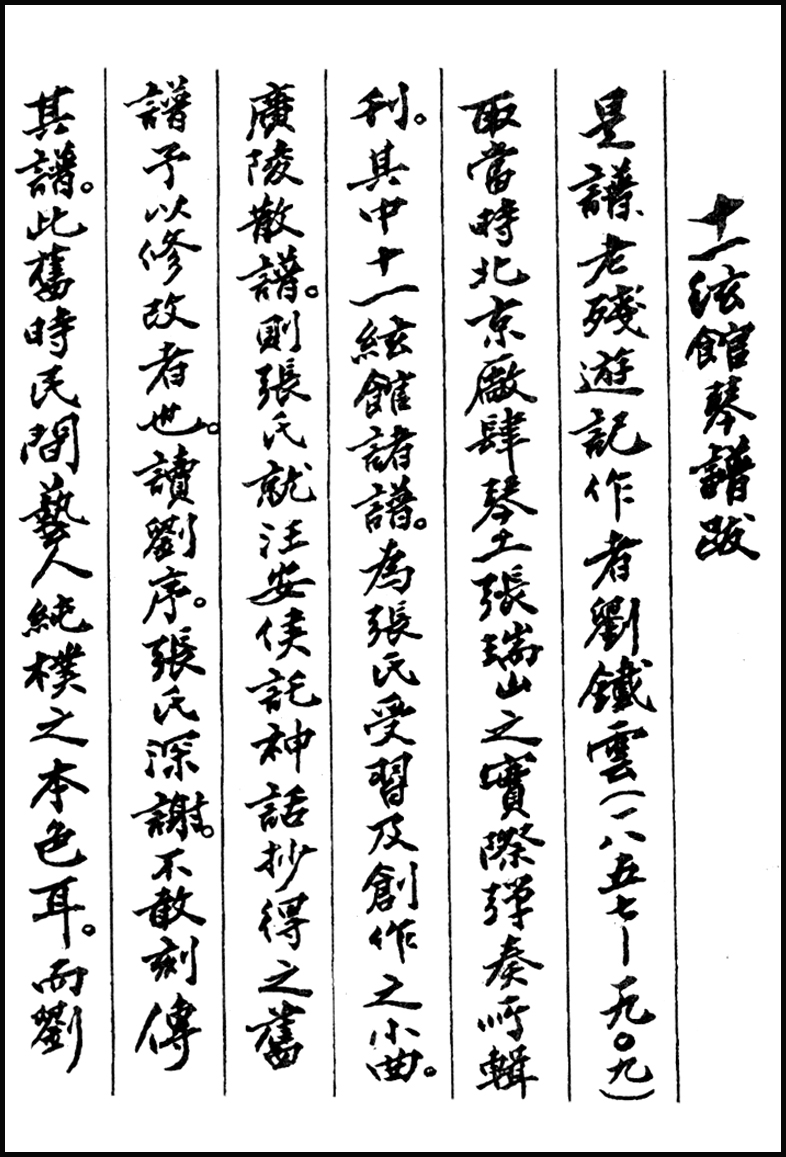 十一絃館琴譜跋
是譜老殘遊記作者劉鐵雲(一八五七—一九〇九)
取當時北京廠肆琴士張瑞山之實際彈奏所輯
刊。其中十一絃館諸譜。為張氏受習及創作之小曲。
廣陵散譜。則張氏就汪安侯託神話抄得之舊
譜予以修改者也。讀劉序。張氏深謝。不敢刻傳
其譜。此舊時民間藝人純樸之本色耳。而劉